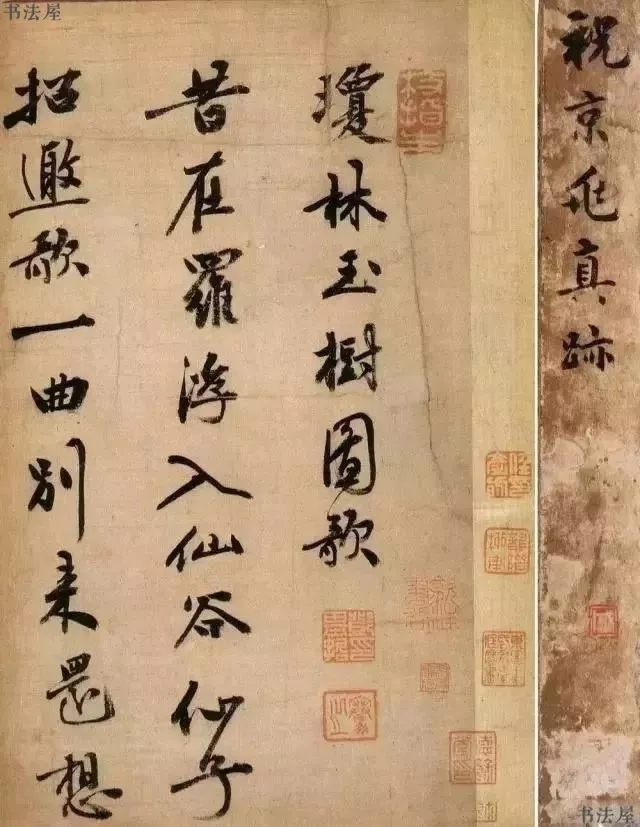 祝京兆真跡
瓊林玉樹圖歌
昔在羅浮入仙谷仙子
招邀歌一曲別來還想
枝指生
书法屋
书法屋